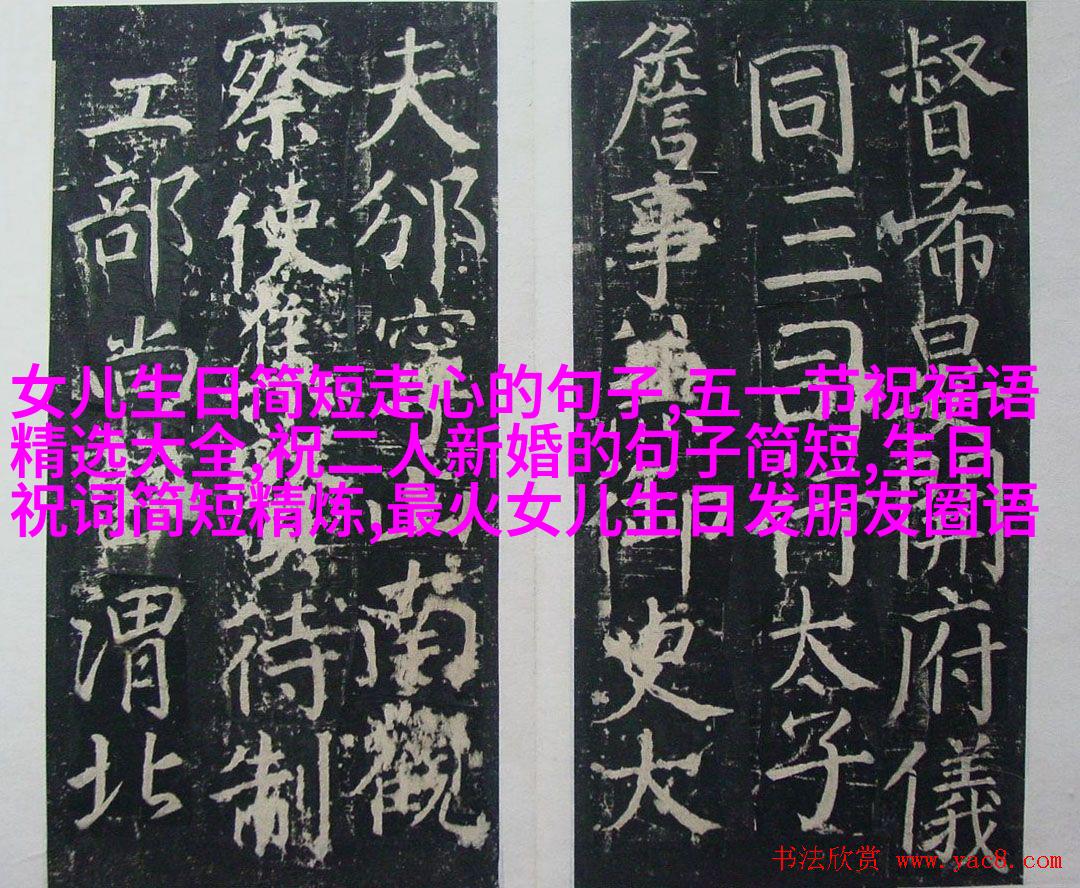 督希開府儀
同三司行太子
詹事兼御史大
夫邠寧山南觀
察使待制
工部尚渭北
女儿生日简短走心的句子,五一节祝福语
精选大全,祝二人新婚的句子简短,生日
祝词简短精炼,最火女儿生日发朋友圈语
书法欣赏 www.yac8.com